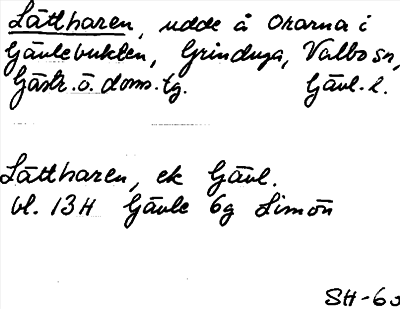 Lättharen, udde å Orarna i
Gävlebukten, Grinduga, Valbo sn,
Gästr. ö. doms.tg. Gävl. l.
Lättharen, ek Gävl.
bl. 13H Gävle 6g Limön
SH-63